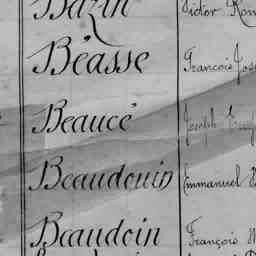 Bazin Victor
Béasse François
Beaucé Joseph
Beaudouin Emmanuel
Beaudoin François